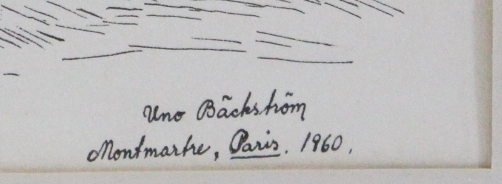 Uno Bäckström
Montmartre, Paris. 1960.